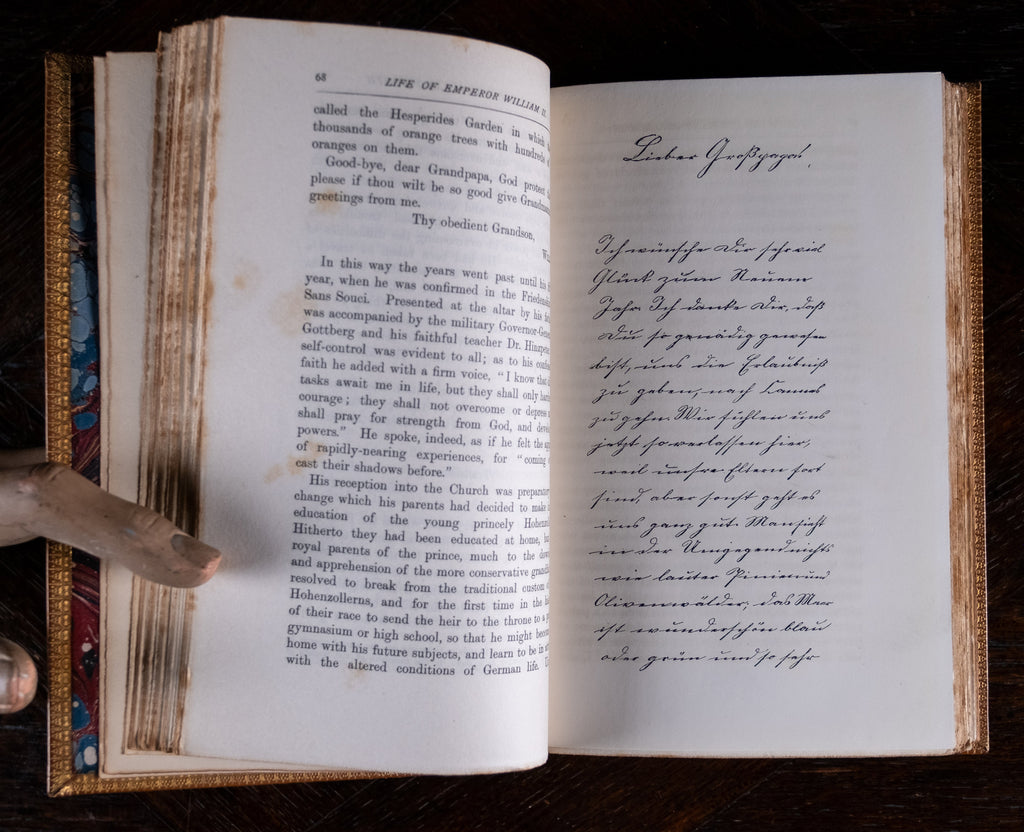 68 LIFE OF EMPEROR WILLIAM II.
called the Hesperides Garden in which
thousands of orange trees with hundreds
oranges on them.
Good-bye, dear Grandpapa, God protect
please if thou wilt be so good give
greetings from me.
Thy obedient Grandson,
In this way the years went past until his
year, when he was confirmed in the
Sans Souci. Presented at the altar by his
was accompanied by the military
Gottberg and his faithful teacher Dr.
self-control was evident to all; as to his
faith he added with a firm voice, "I know that
tasks await me in life, but they shall only
courage; they shall not overcome or depress
shall pray for strength from God, and
powers." He spoke, indeed, as if he felt the
of rapidly-nearing experiences, for "coming
cast their shadows before."
His reception into the Church was
change which his parents had decided to make
education of the young princely
Hitherto they had been educated at home,
royal parents of the prince, much to the
and apprehension of the more conservative
resolved to break from the traditional custom
Hohenzollerns, and for the first time in the
of their race to send the heir to the throne to a
gymnasium or high school, so that he might
home with his future subjects, and learn to be in
with the altered conditions of German life.
Lieber Großpapa,
Ich wünsche Dir sehr viel
Glück zum Neuen
Jahr. Ich danke Dir, daß
Du so gnädig gewesen
bist, uns die Erlaubniß
zu geben, nach Cannes
zu gehen. Wir fühlen uns
jetzt so verlassen hier,
weil unsre Eltern fort
sind, aber sonst geht es
uns ganz gut. Man sieht
in der Umgegend nichts
wie lauter Pinien und
Olivenwälder; das Meer
ist wunderschön blau
oder grün und so sehr